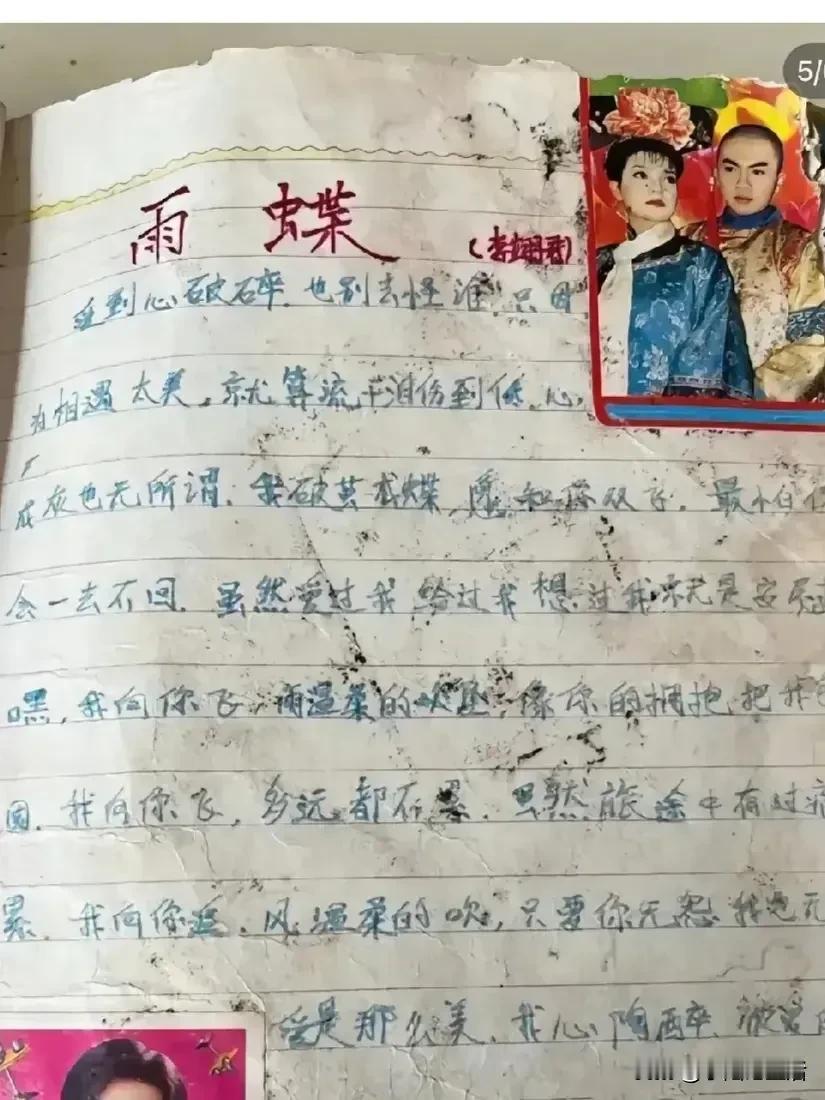 5/
雨 蝶 (李翊君)
到心破碎.也别去怪谁.只因
为相遇太美.就算流干泪伤到低.心
成灰也无所谓.我破茧成蝶.愿和你双飞.最怕你
会一去不回.虽然爱过我给过我想过我就是安慰
嘿,我向你飞,雨温柔的吹坠,像你的拥抱把我
围.我向你飞,多远都不累.虽然旅途中有过痛
累.我向你追.风温柔的吹,只要你无怨我也无
爱是那么美.我心陶醉.被爱的